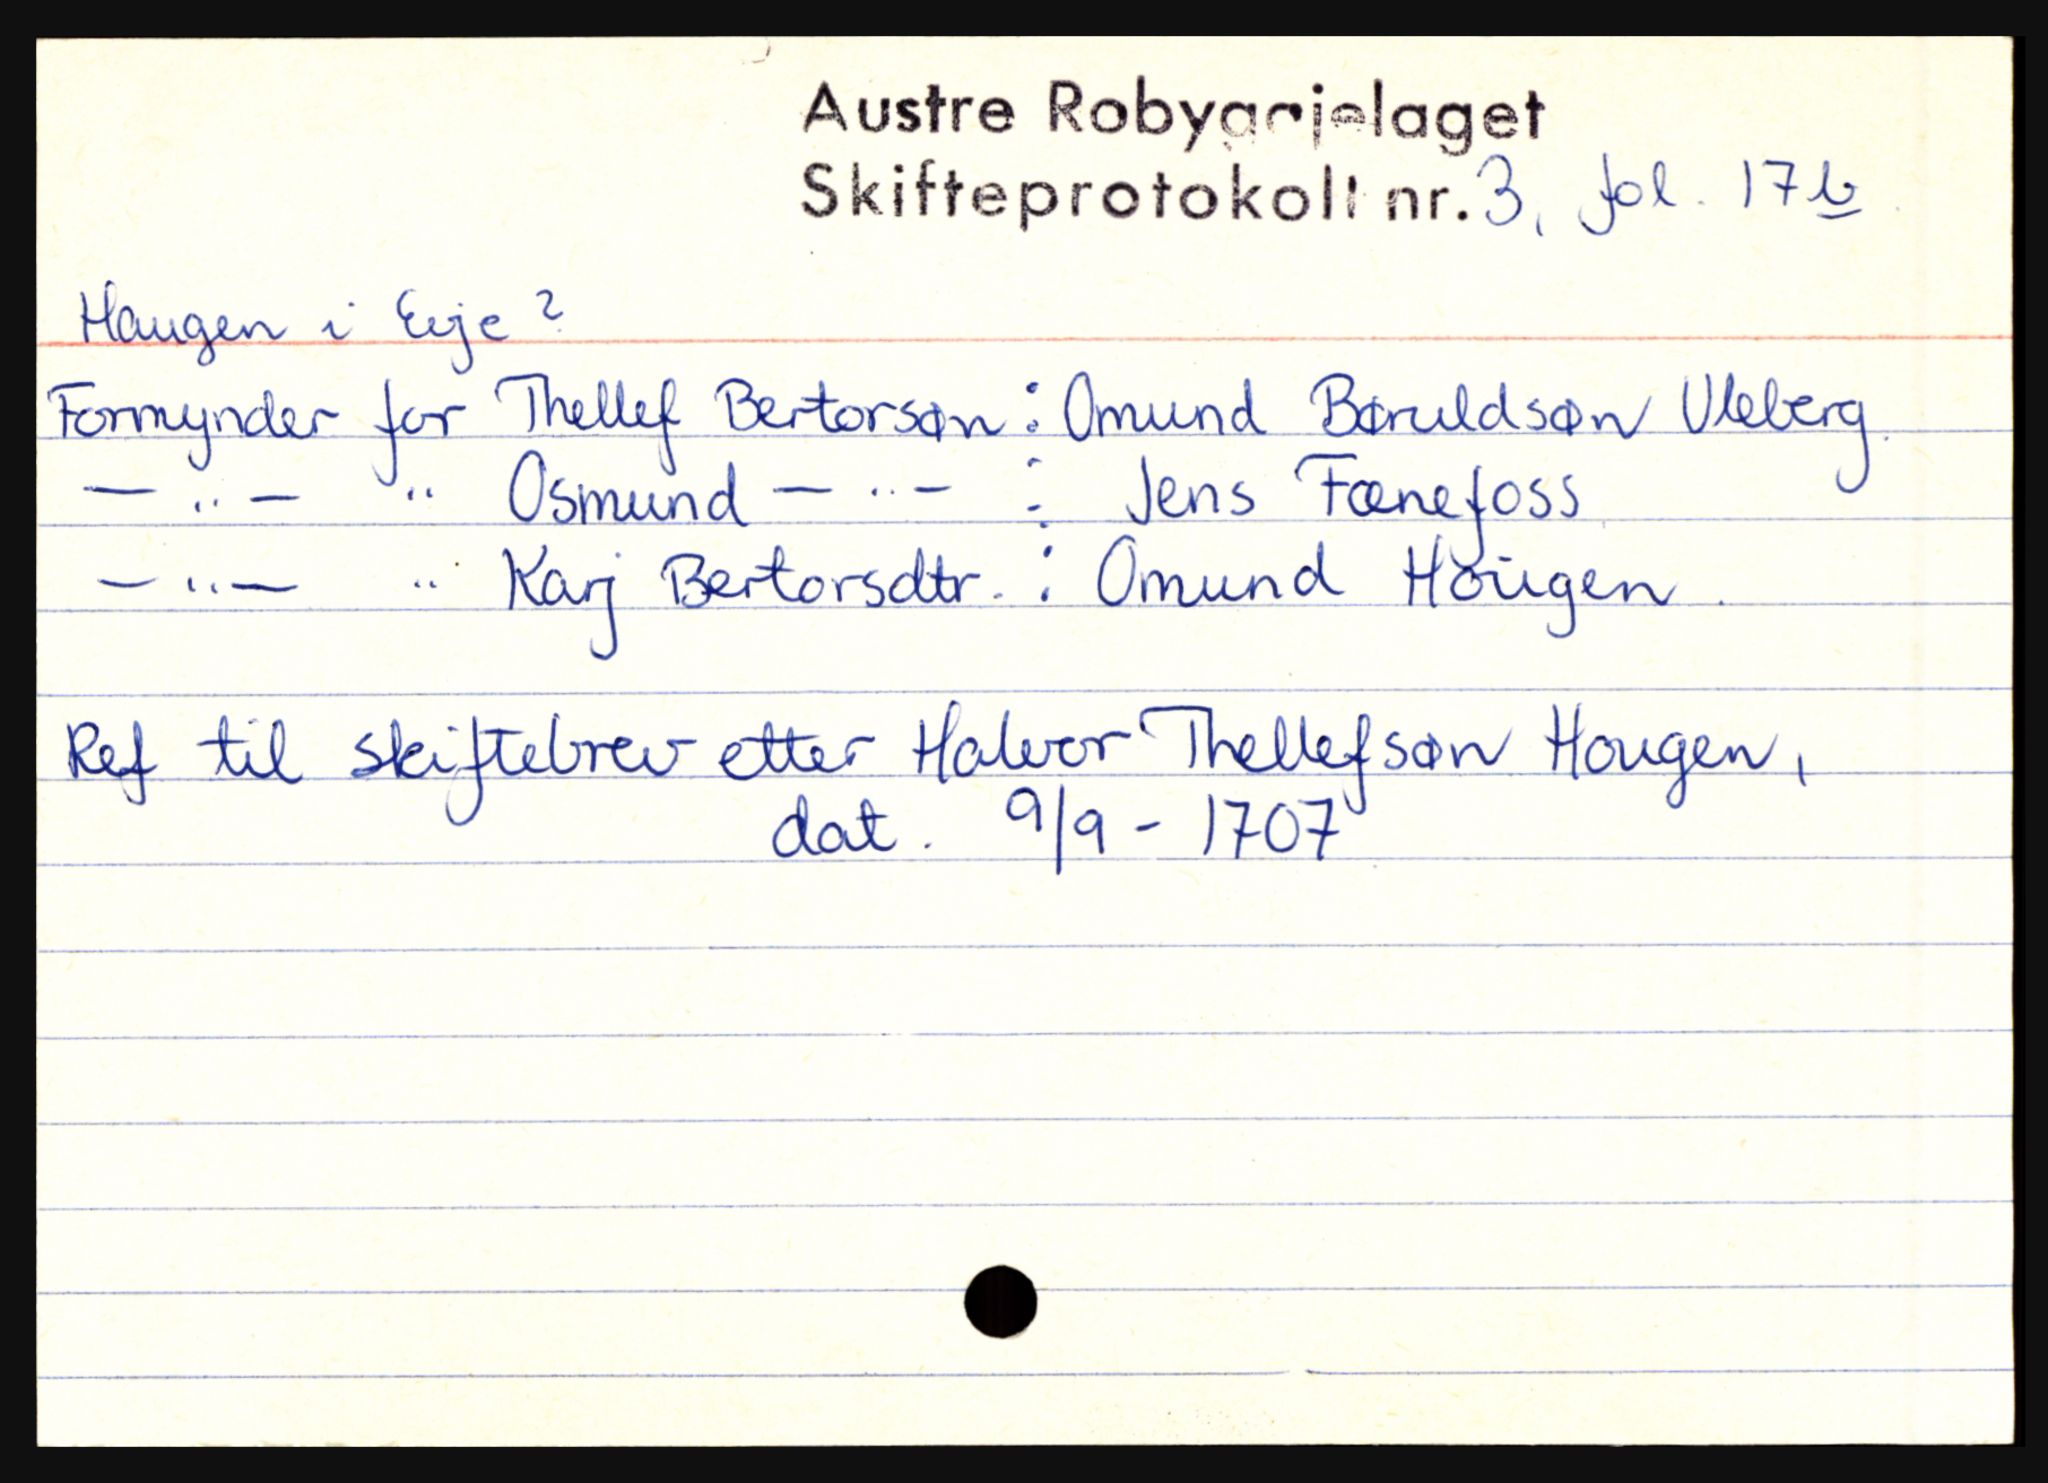 Austre Robygdelaget
Skifteprotokoll nr. 3, fol. 17b
Haugen i Evje?
Formynder for Thellef Bertorsøn : Omund Børuldsøn Uleberg.
— " — " Osmund — " — : Jens Fænefoss
— " — " Karj Bertorsdtr. : Omund Hougen.
Ref til skiftebrev etter Halvor Thellefsøn Hougen,
dat. 9/9 - 1707